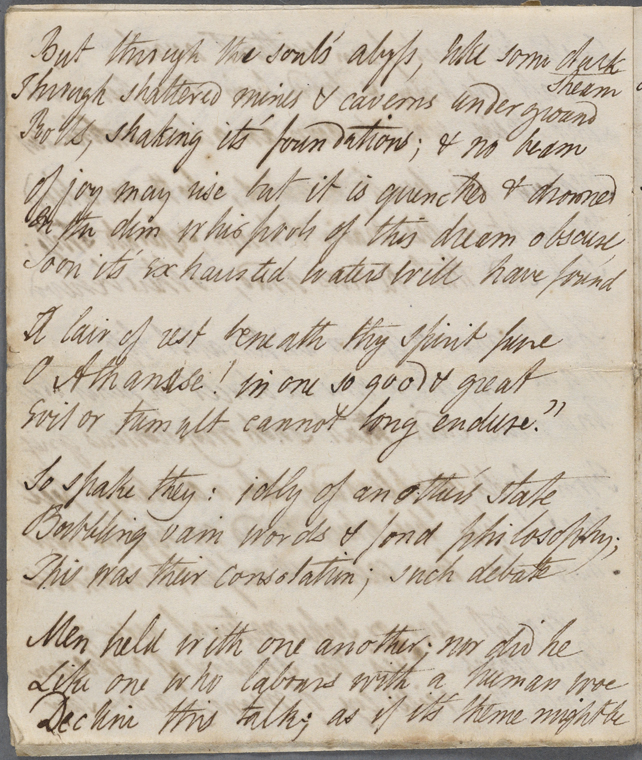 But through the soul's abyss, like some dark
stream
Through shattered mines & caverns underground
Rolls, shaking its' foundations; & no beam
Of joy may rise but it is quenched & drowned
In the dim whirlpools of this dream obscure
Soon it's exhausted waters will have found
A lair of rest beneath thy spirit pure
O Athanase! in one so good & great
Evil or tumult cannot long endure."
So spake they: idly of another's state
Babbling vain words & fond philosophy;
This was their consolation; such debate
Men held with one another; nor did he
Like one who labours with a human woe
Decline this talk; as if it's theme might be